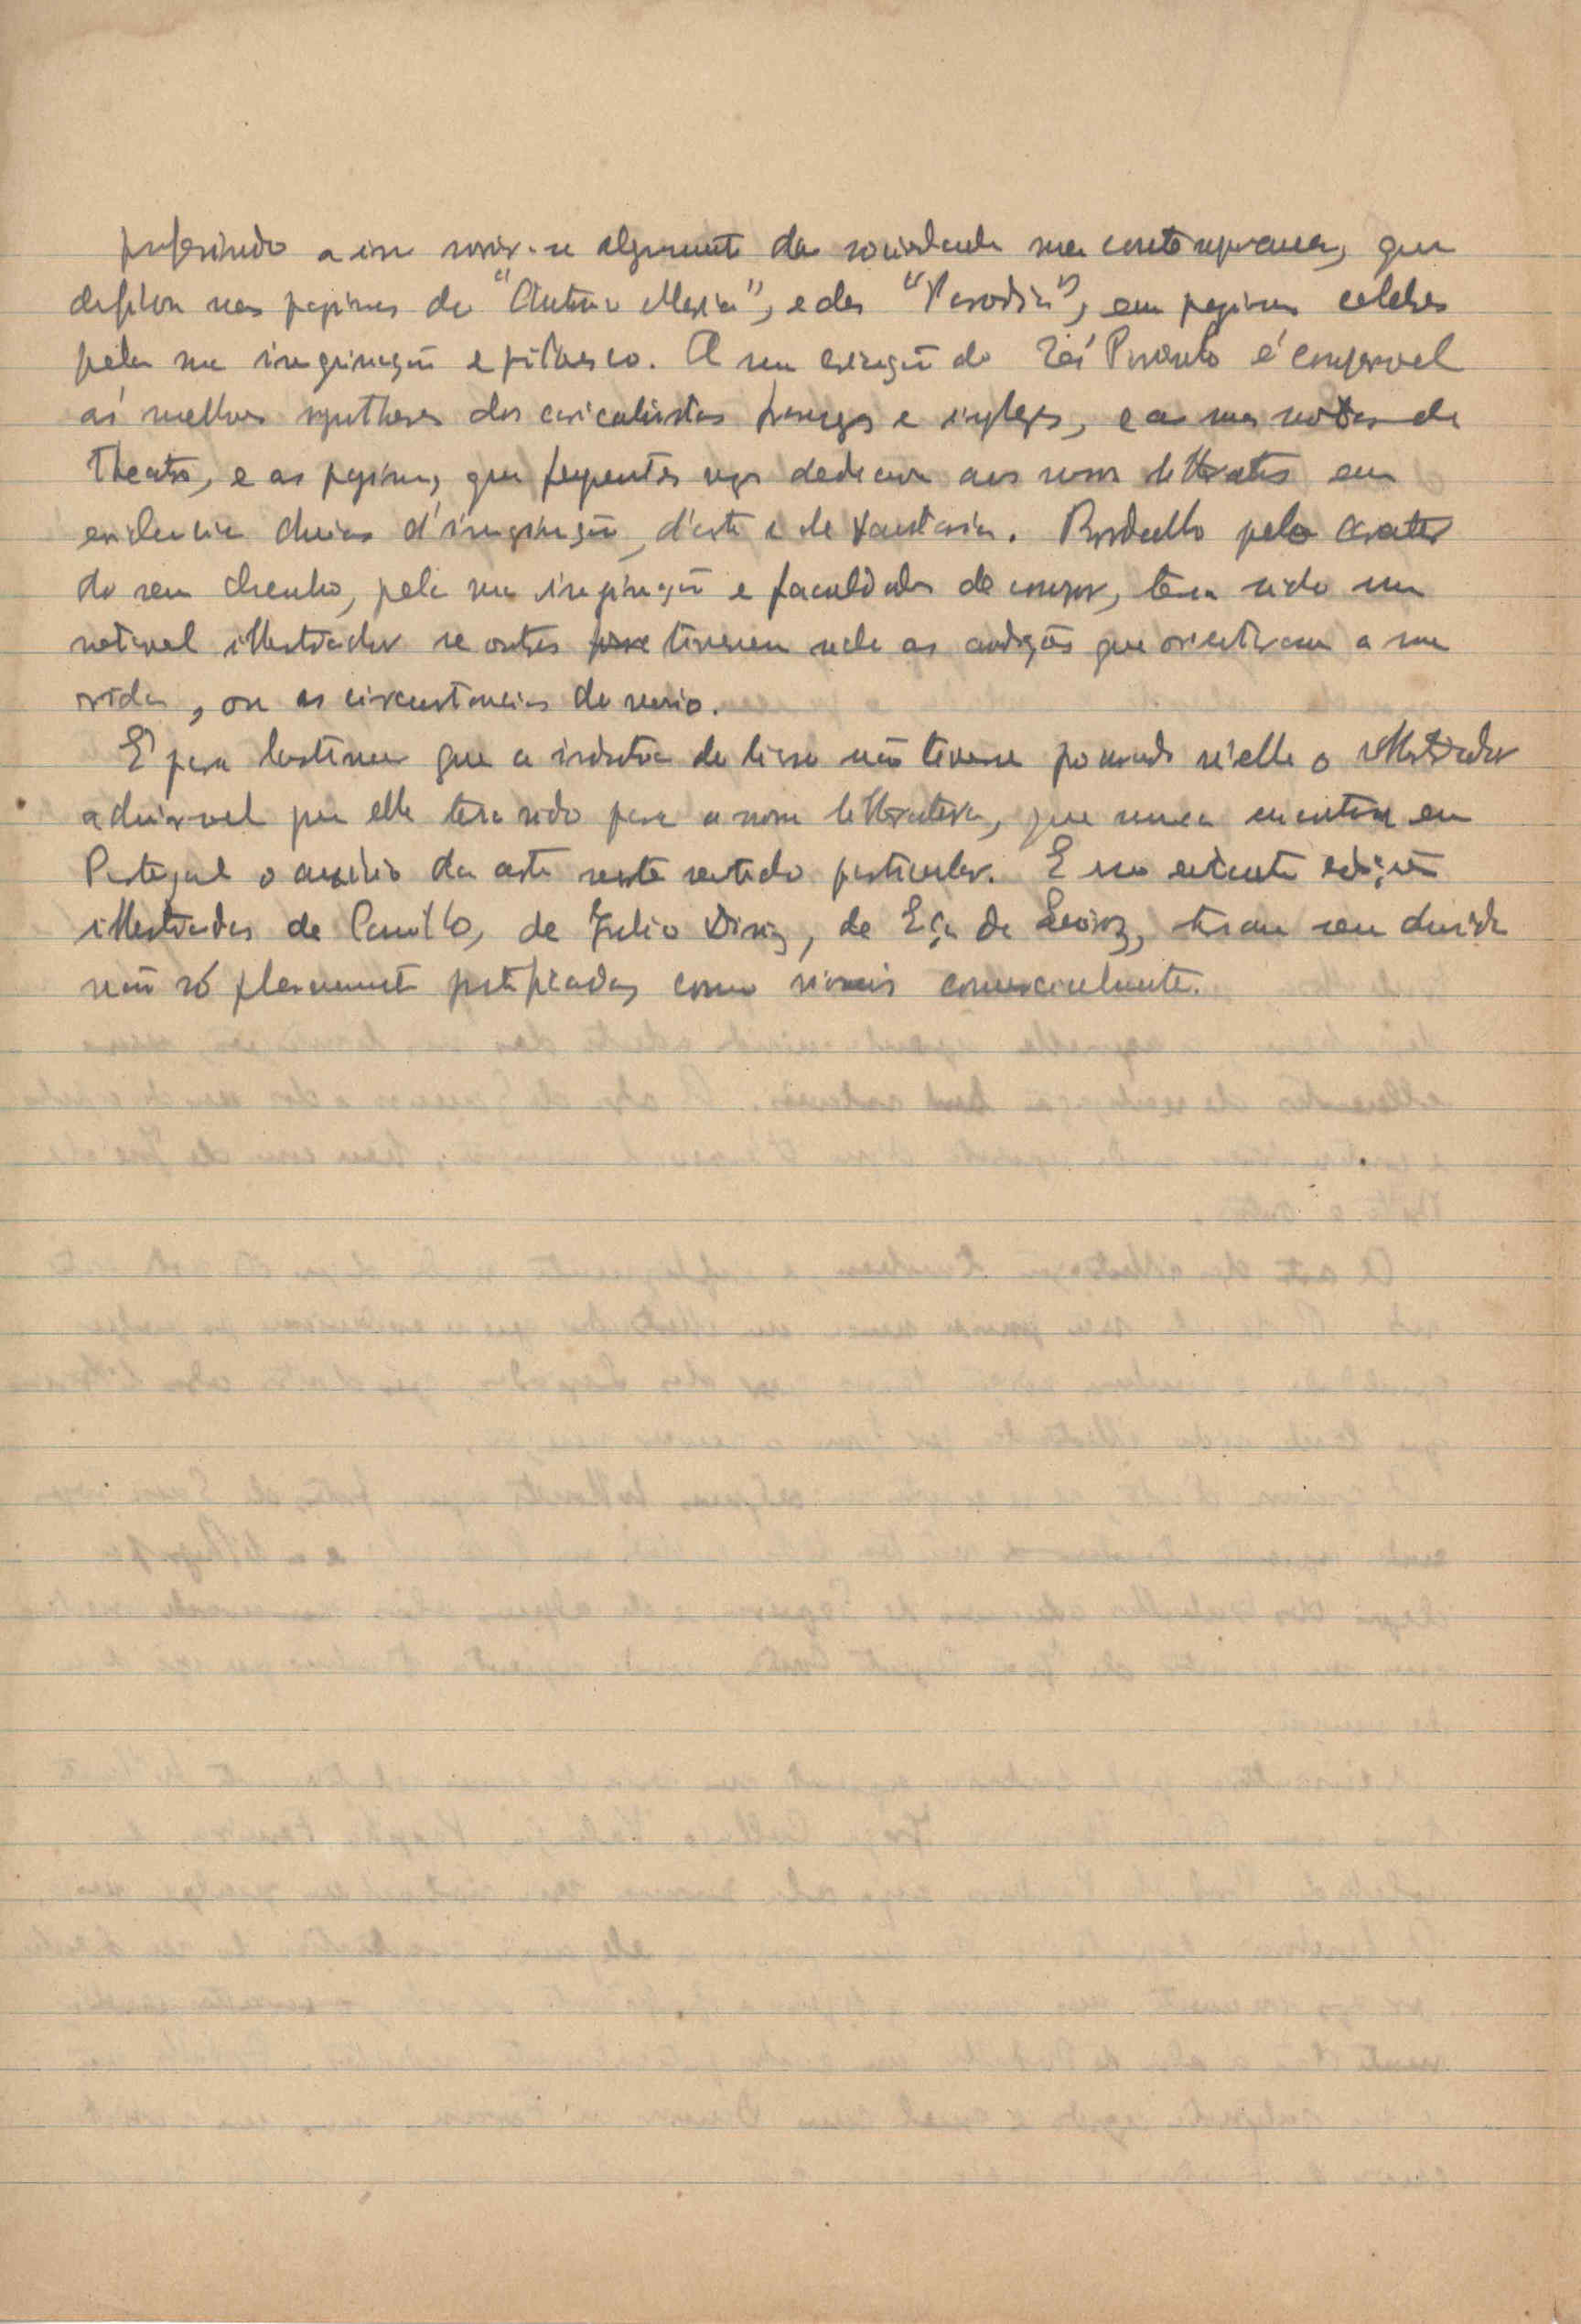 preferindo a isso sorrir-se alegremente da sociedade sua contemporanea, que
desfilou nas paginas do "Antonio Maria", e da "Parodia", em paginas celebres
pela sua imaginação e pitoresco. A sua creação do Zé Povinho é comparavel
ás melhores syntheses dos caricaturistas francezes e inglezes, e as suas notas de
theatro, e as paginas, que frequentes vezes dedicava aos nossos litteratos em
evidencia cheias d'imaginação, d'arte e de fantasia. Bordallo pelo carater
do seu desenho, pela sua imaginação e faculdades de compor, teria sido um
notavel illustrador se outras tivessem sido as condições que orientaram a sua
vida, ou as circunstancias do meio.
É para lastimar que a industria do livro não tivesse procurado n'elle o illustrador
admiravel que elle teria sido para a nossa litteratura, que nunca encontrou em
Portugal o auxilio da arte neste sentido particular. E no entanto edições
illustradas de Camillo, de Julio Diniz, de Eça de Queiroz, teriam sem duvida
não só plenamente justificadas, como viaveis comercialmente.